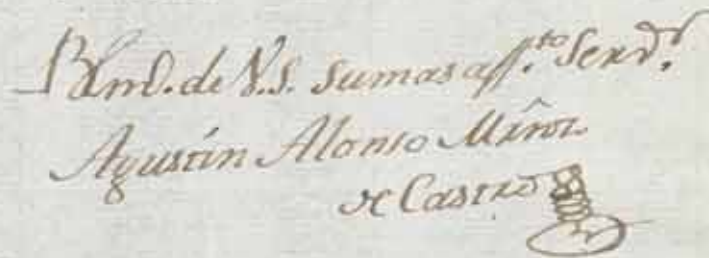 Blmo. de V.S. su mas aff.to Serv.r
Agustín Alonso
de Castro